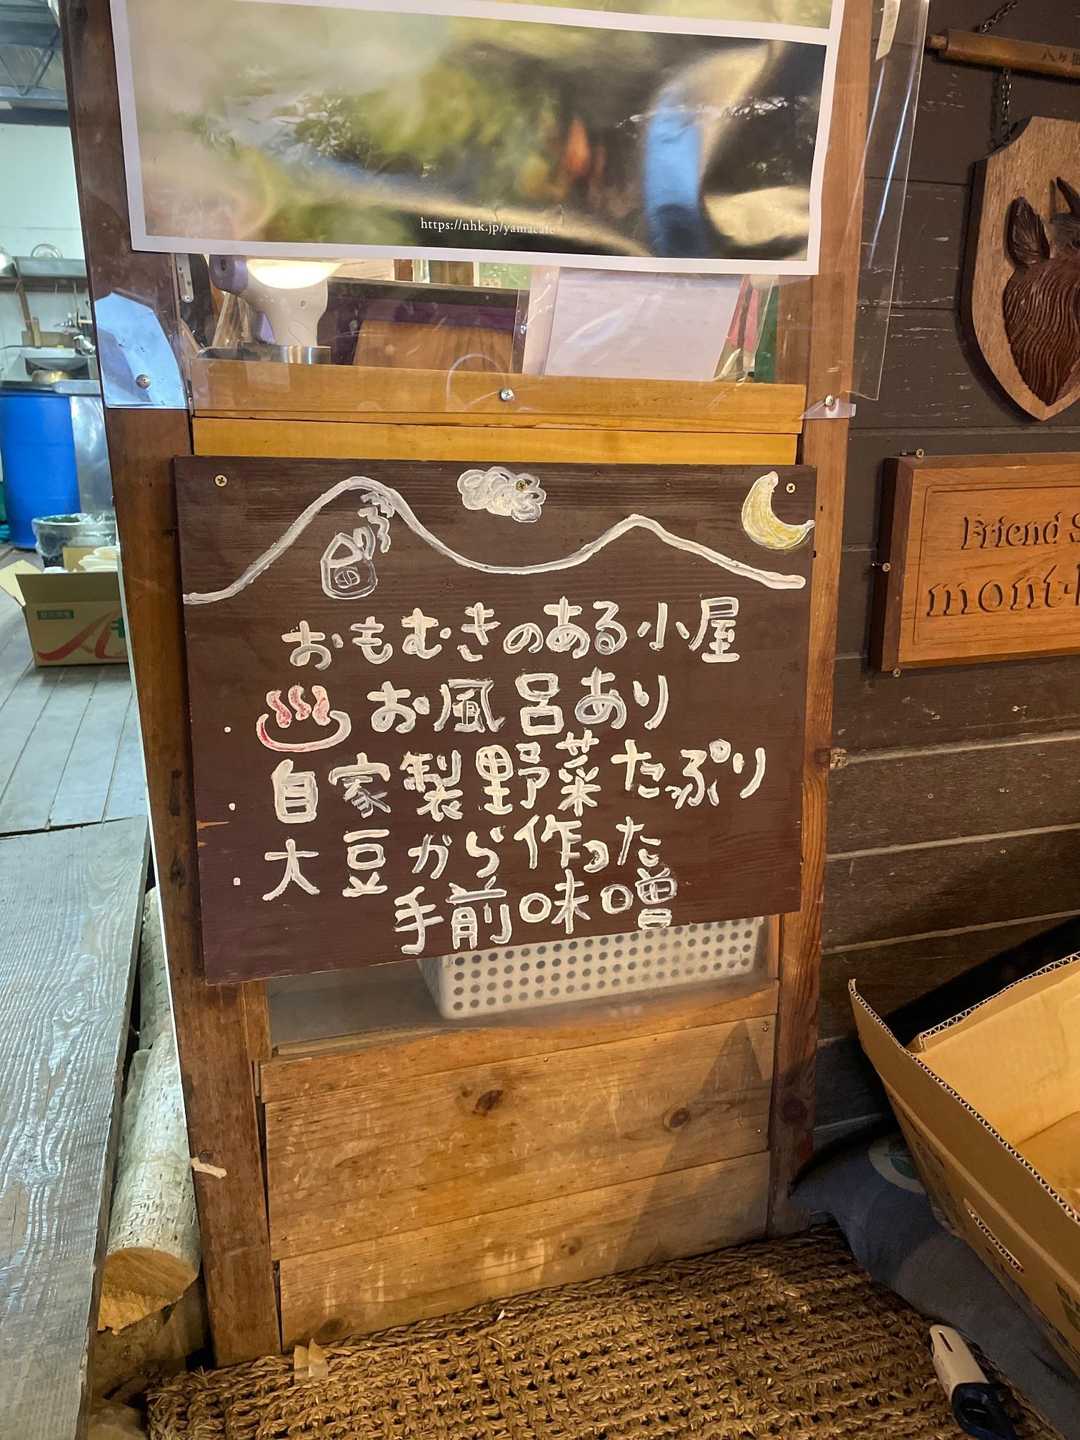 https://nhk.jp/yamacafe
おもむきのある小屋
お風呂あり
自家製野菜たっぷり
大豆から作った
手前味噌
Friend
mont